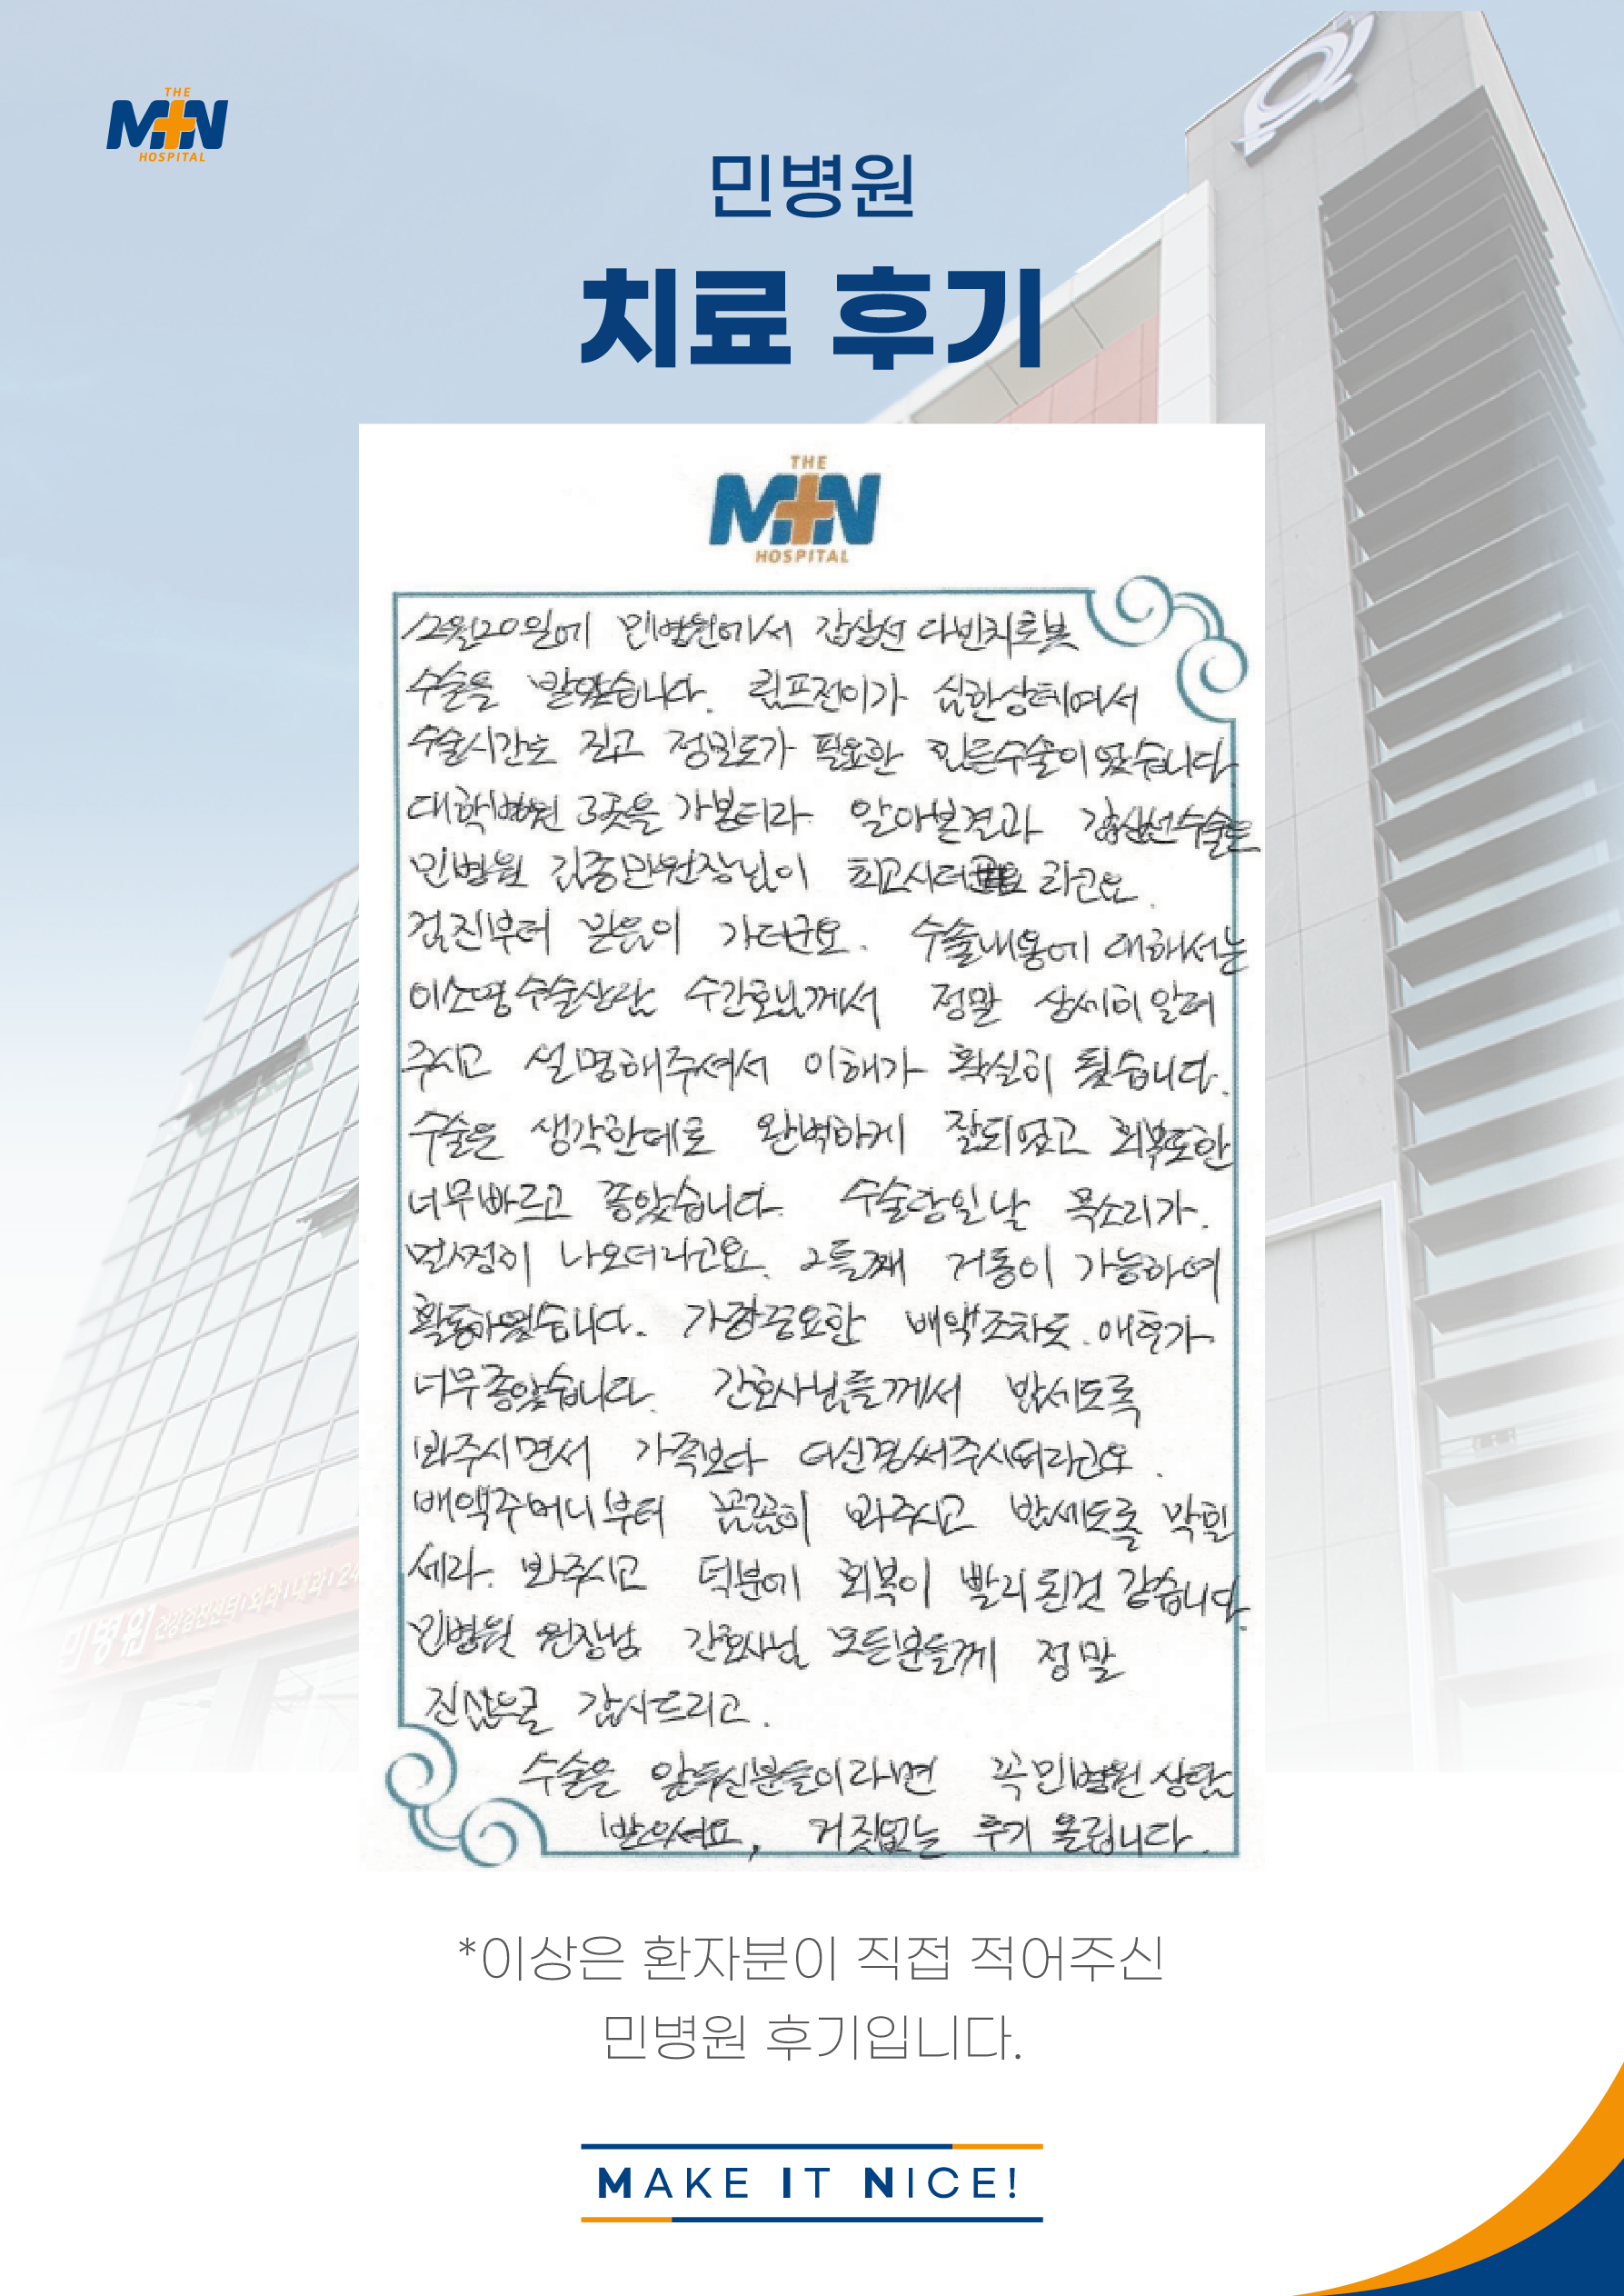 THE
MIN
HOSPITAL
민병원
치료 후기
THE
MIN
HOSPITAL
12월20일에 민병원에서 갑상선 다빈치로봇
수술을 받았습니다. 림프전이가 심한상태여서
수술시간도 길고 정밀도가 필요한 힘든수술이였습니다
대학병원 3곳을 가봤더라 알아본결과 갑상선수술는
민병원 김종민원장님이 최고시더 라고요.
검진부터 믿음이 가더군요. 수술내용에 대해서는
이소평 수술상담 수간호님께서 정말 상세히 알려
주시고 설명해주셔서 이해가 확실히 됬습니다.
수술은 생각한데로 완벽하게 잘되였고 회복또한
너무빠르고 좋았습니다. 수술당일날 목소리가.
멀쩡히 나오더라고요. 2틀째 거동이 가능하여
활동하였습니다. 가장중요한 배액조차도. 예후가
너무좋았습니다. 간호사님들께서 밤세도록
봐주시면서 가족보다 더신경써주시더라고요.
배액주머니부터 꼼꼼히 봐주시고 밤세도록 막힐
세라. 봐주시고 덕분에 회복이 빨리된것 같습니다.
민병원 원장님 간호사님 모든분들께 정말
진심으로 감사드리고.
수술은 앞두신분들이라면 꼭민병원상담
받으셔요, 거짓없는 후기 올립니다.
민병원 건강검진센터 외과 내과 24
*이상은 환자분이 직접 적어주신
민병원 후기입니다.
MAKE IT NICE!